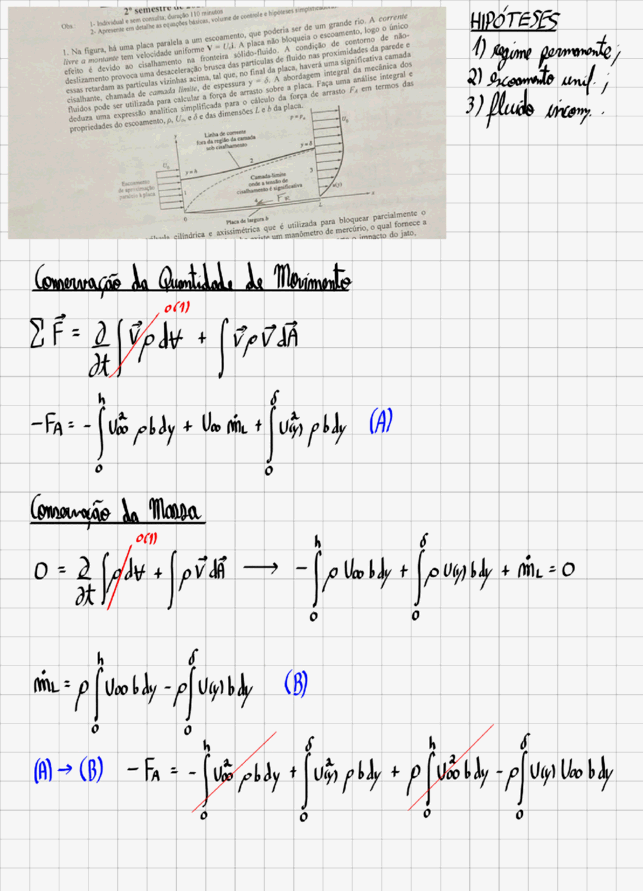 2º semestre de
Obs: 1- Individual e sem consulta, duração 110 minutos
2- Apresente em detalhe as equações básicas, volume de controle e hipóteses
1. Na figura, há uma placa paralela a um escoamento, que poderia ser de um grande rio. A corrente
livre a montante tem velocidade uniforme V = U₀i. A placa não bloqueia o escoamento, logo o único
efeito é devido ao cisalhamento na fronteira sólido-fluido. A condição de contorno de não-
deslizamento provoca uma desaceleração brusca das partículas de fluido nas proximidades da parede e
essas retardam as partículas vizinhas acima, tal que, no final da placa, haverá uma significativa camada
cisalhante, chamada de camada limite, de espessura y = δ. A abordagem integral da mecânica dos
fluidos pode ser utilizada para calcular a força de arrasto sobre a placa. Faça uma análise integral e
deduza uma expressão analítica simplificada para o cálculo da força de arrasto F_A em termos das
propriedades do escoamento, ρ, U₀, e δ e das dimensões L e b da placa.
Linha de corrente
fora da região da camada
sob cisalhamento
y = h
2
y = δ
U₀
U₀
Escoamento
de aproximação
paralelo à placa
1
Camada-limite
onde a tensão de
cisalhamento é significativa
3
u(y)
y
x
0
4
L
Placa de largura b
cilíndrica e axissimétrica que é utilizada para bloquear parcialmente o
um manômetro de mercúrio, o qual fornece a
o impacto do jato,
HIPÓTESES
1) regime permanente;
2) escoamento unif.;
3) fluido incom..
Conservação da Quantidade de Movimento
o(1)
Σ F⃗ = ∂/∂t ∫ V⃗ ρ d∀ + ∫ V⃗ ρ V⃗ dA⃗
-F_A = -∫₀ʰ U∞² ρ b dy + U∞ ṁ_L + ∫₀^δ U²(y) ρ b dy (A)
Conservação da Massa
o(1)
0 = ∂/∂t ∫ ρ d∀ + ∫ ρ V⃗ dA⃗ → -∫₀ʰ ρ U∞ b dy + ∫₀^δ ρ U(y) b dy + ṁ_L = 0
ṁ_L = ρ ∫₀ʰ U∞ b dy - ρ ∫₀^δ U(y) b dy (B)
(A) → (B) -F_A = -∫₀ʰ U∞² ρ b dy + ∫₀^δ U²(y) ρ b dy + ρ ∫₀ʰ U∞² b dy - ρ ∫₀^δ U(y) U∞ b dy